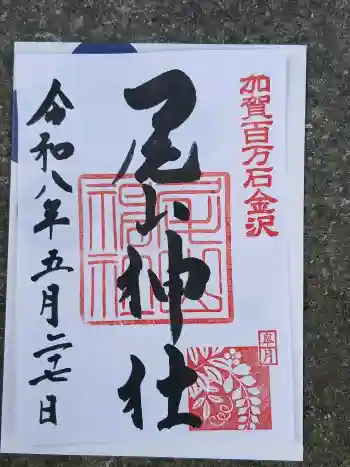 加賀百万石金沢
尾山神社
皐月
令和八年五月二十七日